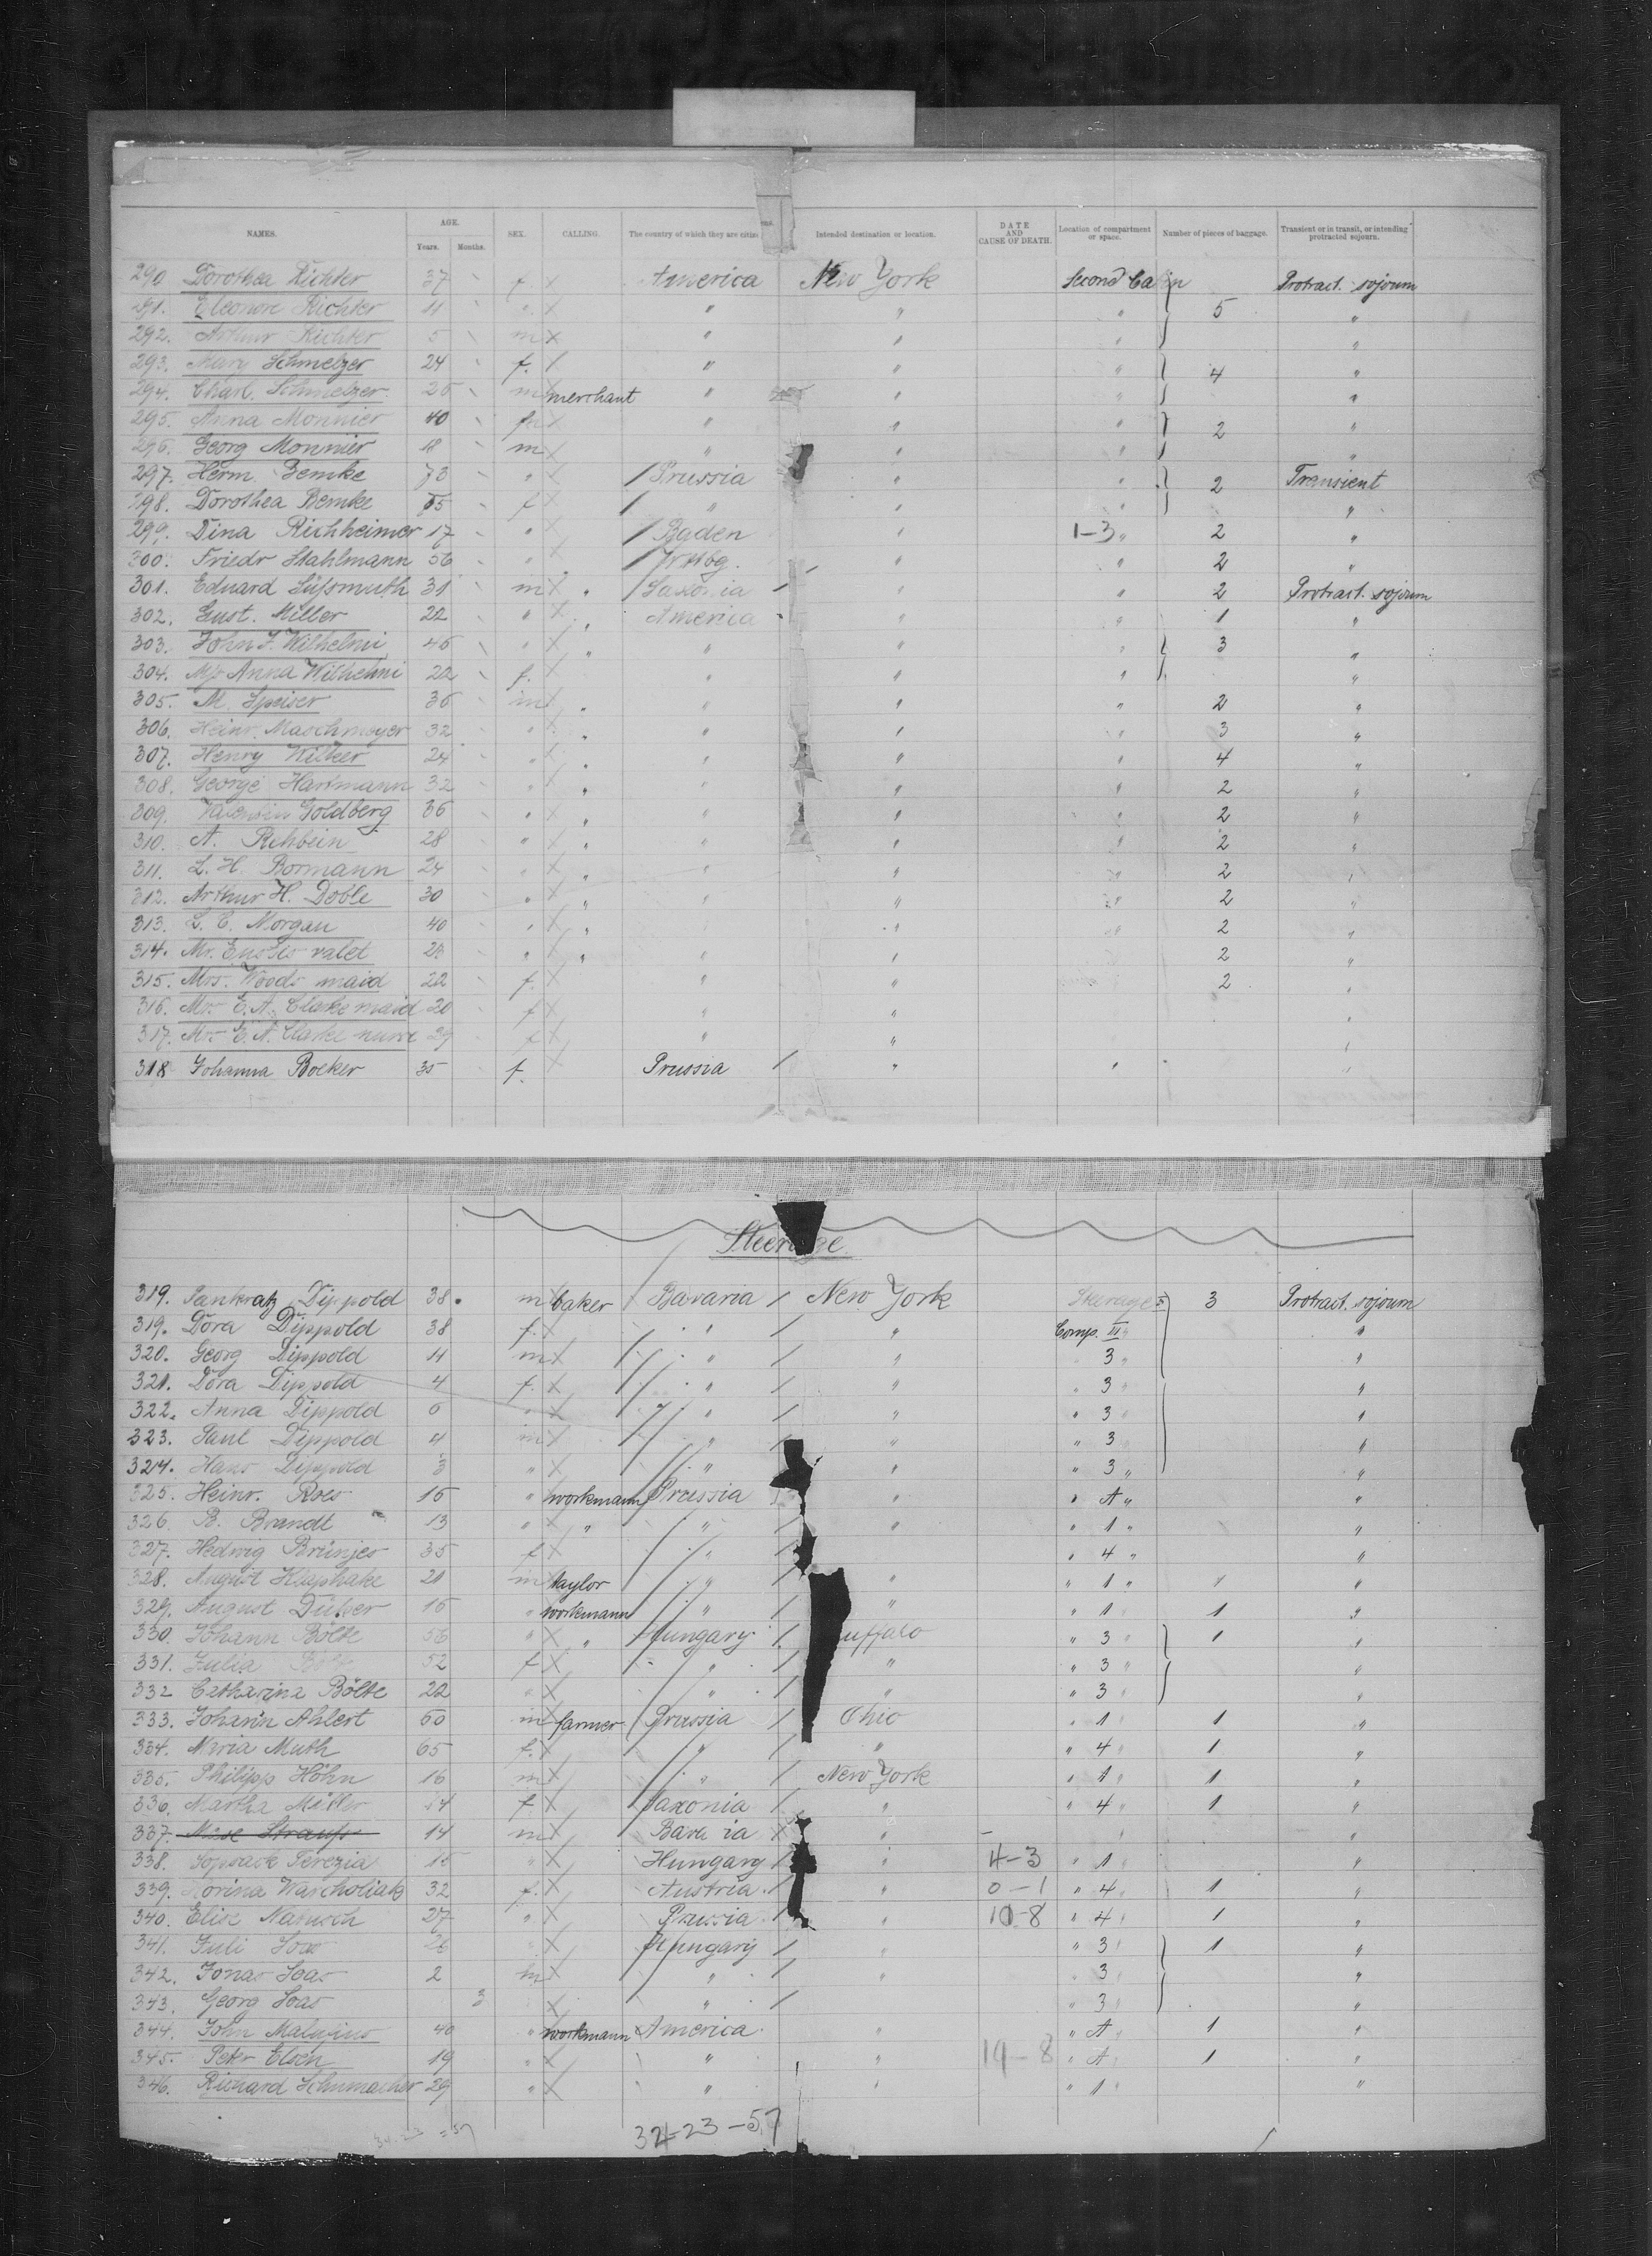 NAMES. AGE. Years. Months. SEX. CALLING. The country of which they are citizens. Intended destination or location. DATE AND CAUSE OF DEATH. Location of compartment or space. Number of pieces of baggage. Transient or in transit, or intending protracted sojourn.
290 Dorothea Richter 37 f. America New York Second Cabin Protract. sojourn
291. Eleonore Richter 11 " " " " 5 "
292. Arthur Richter 5 m " " " "
293. Mary Schmelzer 24 f. " " " 4 "
294. Charl. Schmelzer 26 m merchant " " " "
295. Anna Monnier 40 f " " " 2 "
296. Georg Monnier 18 m " " " "
297. Herm. Bemke 73 " Prussia " " 2 Transient
298. Dorothea Bemke 55 f " " " "
299. Dina Richheimer 17 " Baden " 1-3 " 2 "
300. Friedr Stahlmann 56 " " " 2 "
301. Eduard Süssmuth 31 m " Saxonia " " 2 Protract. sojourn
302. Gust. Miller 22 " " America " " 1 "
303. John F. Wilhelmi 46 " " " " " 3 "
304. Anna Wilhelmi 22 f. " " " "
305. M. Speiser 36 m " " " " 2 "
306. Heinr. Maschmeyer 32 " " " " " 3 "
307. Henry Wilker 24 " " " " " 4 "
308. George Hartmann 32 " " " " " 2 "
309. Valentin Goldberg 36 " " " " " 2 "
310. A. Rehbein 28 " " " " " 2 "
311. L. H. Bormann 24 " " " " " 2 "
312. Arthur H. Doble 30 " " " " " 2 "
313. L. C. Morgan 40 " " " " " 2 "
314. Mr. Eustis valet 28 " " " " 2 "
315. Mrs. Woods maid 22 f. " " 2 "
316. Mrs E. A. Clarke maid 20 f " " "
317. Mrs E. A. Clarke nurse 29 f " " "
318 Johanna Boeker 35 f. Prussia " " "
Steerage
319. Pankratz Dippold 38 m baker Bavaria New York Steerage 3 Protract. sojourn
319. Dora Dippold 38 f. " " Comp. III " "
320. Georg Dippold 11 m " " 3 " "
321. Dora Dippold 4 f. " " " 3 " "
322. Anna Dippold 6 " " " " 3 " "
323. Paul Dippold 4 m " " " 3 " "
324. Hans Dippold 3 " " " " 3 " "
325. Heinr. Roes 16 " workmann Prussia " " A " "
326. B. Brandt 13 " " " " " 1 " "
327. Hedwig Brünjes 35 f " " 4 " "
328. August Klaphake 21 m taylor " " " 1 " 1 "
329. August Düker 16 " workmann " " " 1 " 1 "
330. Johann Bölte 56 " " Hungary uffalo " 3 " 1 "
331. Julia 52 f " " " 3 " "
332 Catharina Bölte 22 " " " " 3 " "
333. Johann Ahlert 60 m farmer Prussia Ohio " 1 " 1 "
334. Maria Muth 65 f. " " " 4 " 1 "
335. Philipp Höhn 16 m " New York " 1 " 1 "
336. Martha Miller 14 f Saxonia " " 4 " 1 "
337. Strauss 14 m Bava ia " " "
338. Terezia 15 " Hungary " 4-3 " 1 " "
339. 32 f. Austria " 0-1 " 4 " 1 "
340. Elise Nanusch 27 " Prussia " 10-8 " 4 " 1 "
341. Juli Soas 26 " Hungary " " 3 " 1 "
342. Jonas Soas 2 m " " " 3 " "
343. Georg Soas 3 " " " 3 " "
344. John 40 " workmann America " " A " 1 "
345. Peter Elsen 19 " " " 19-8 " A " 1 "
346. Richard Schumacher 29 " " " " 1 " "
34-23 = 57
34-23-57